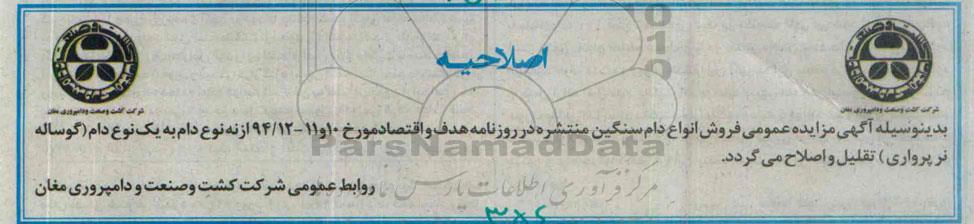 اصلاحیه
شرکت کشت وصنعت ودامپروری مغان
شرکت کشت وصنعت ودامپروری مغان
بدینوسیله آگهی مزایده عمومی فروش انواع دام سنگین منتشره در روزنامه هدف و اقتصاد مورخ ۱۰و۱۱-۹۴/۱۲ از نه نوع دام به یک نوع دام (گوساله
نر پرواری) تقلیل و اصلاح می گردد.
روابط عمومی شرکت کشت وصنعت و دامپروری مغان
ParsNamadData
مرکز فرآوری اطلاعات پارس
۳×۲